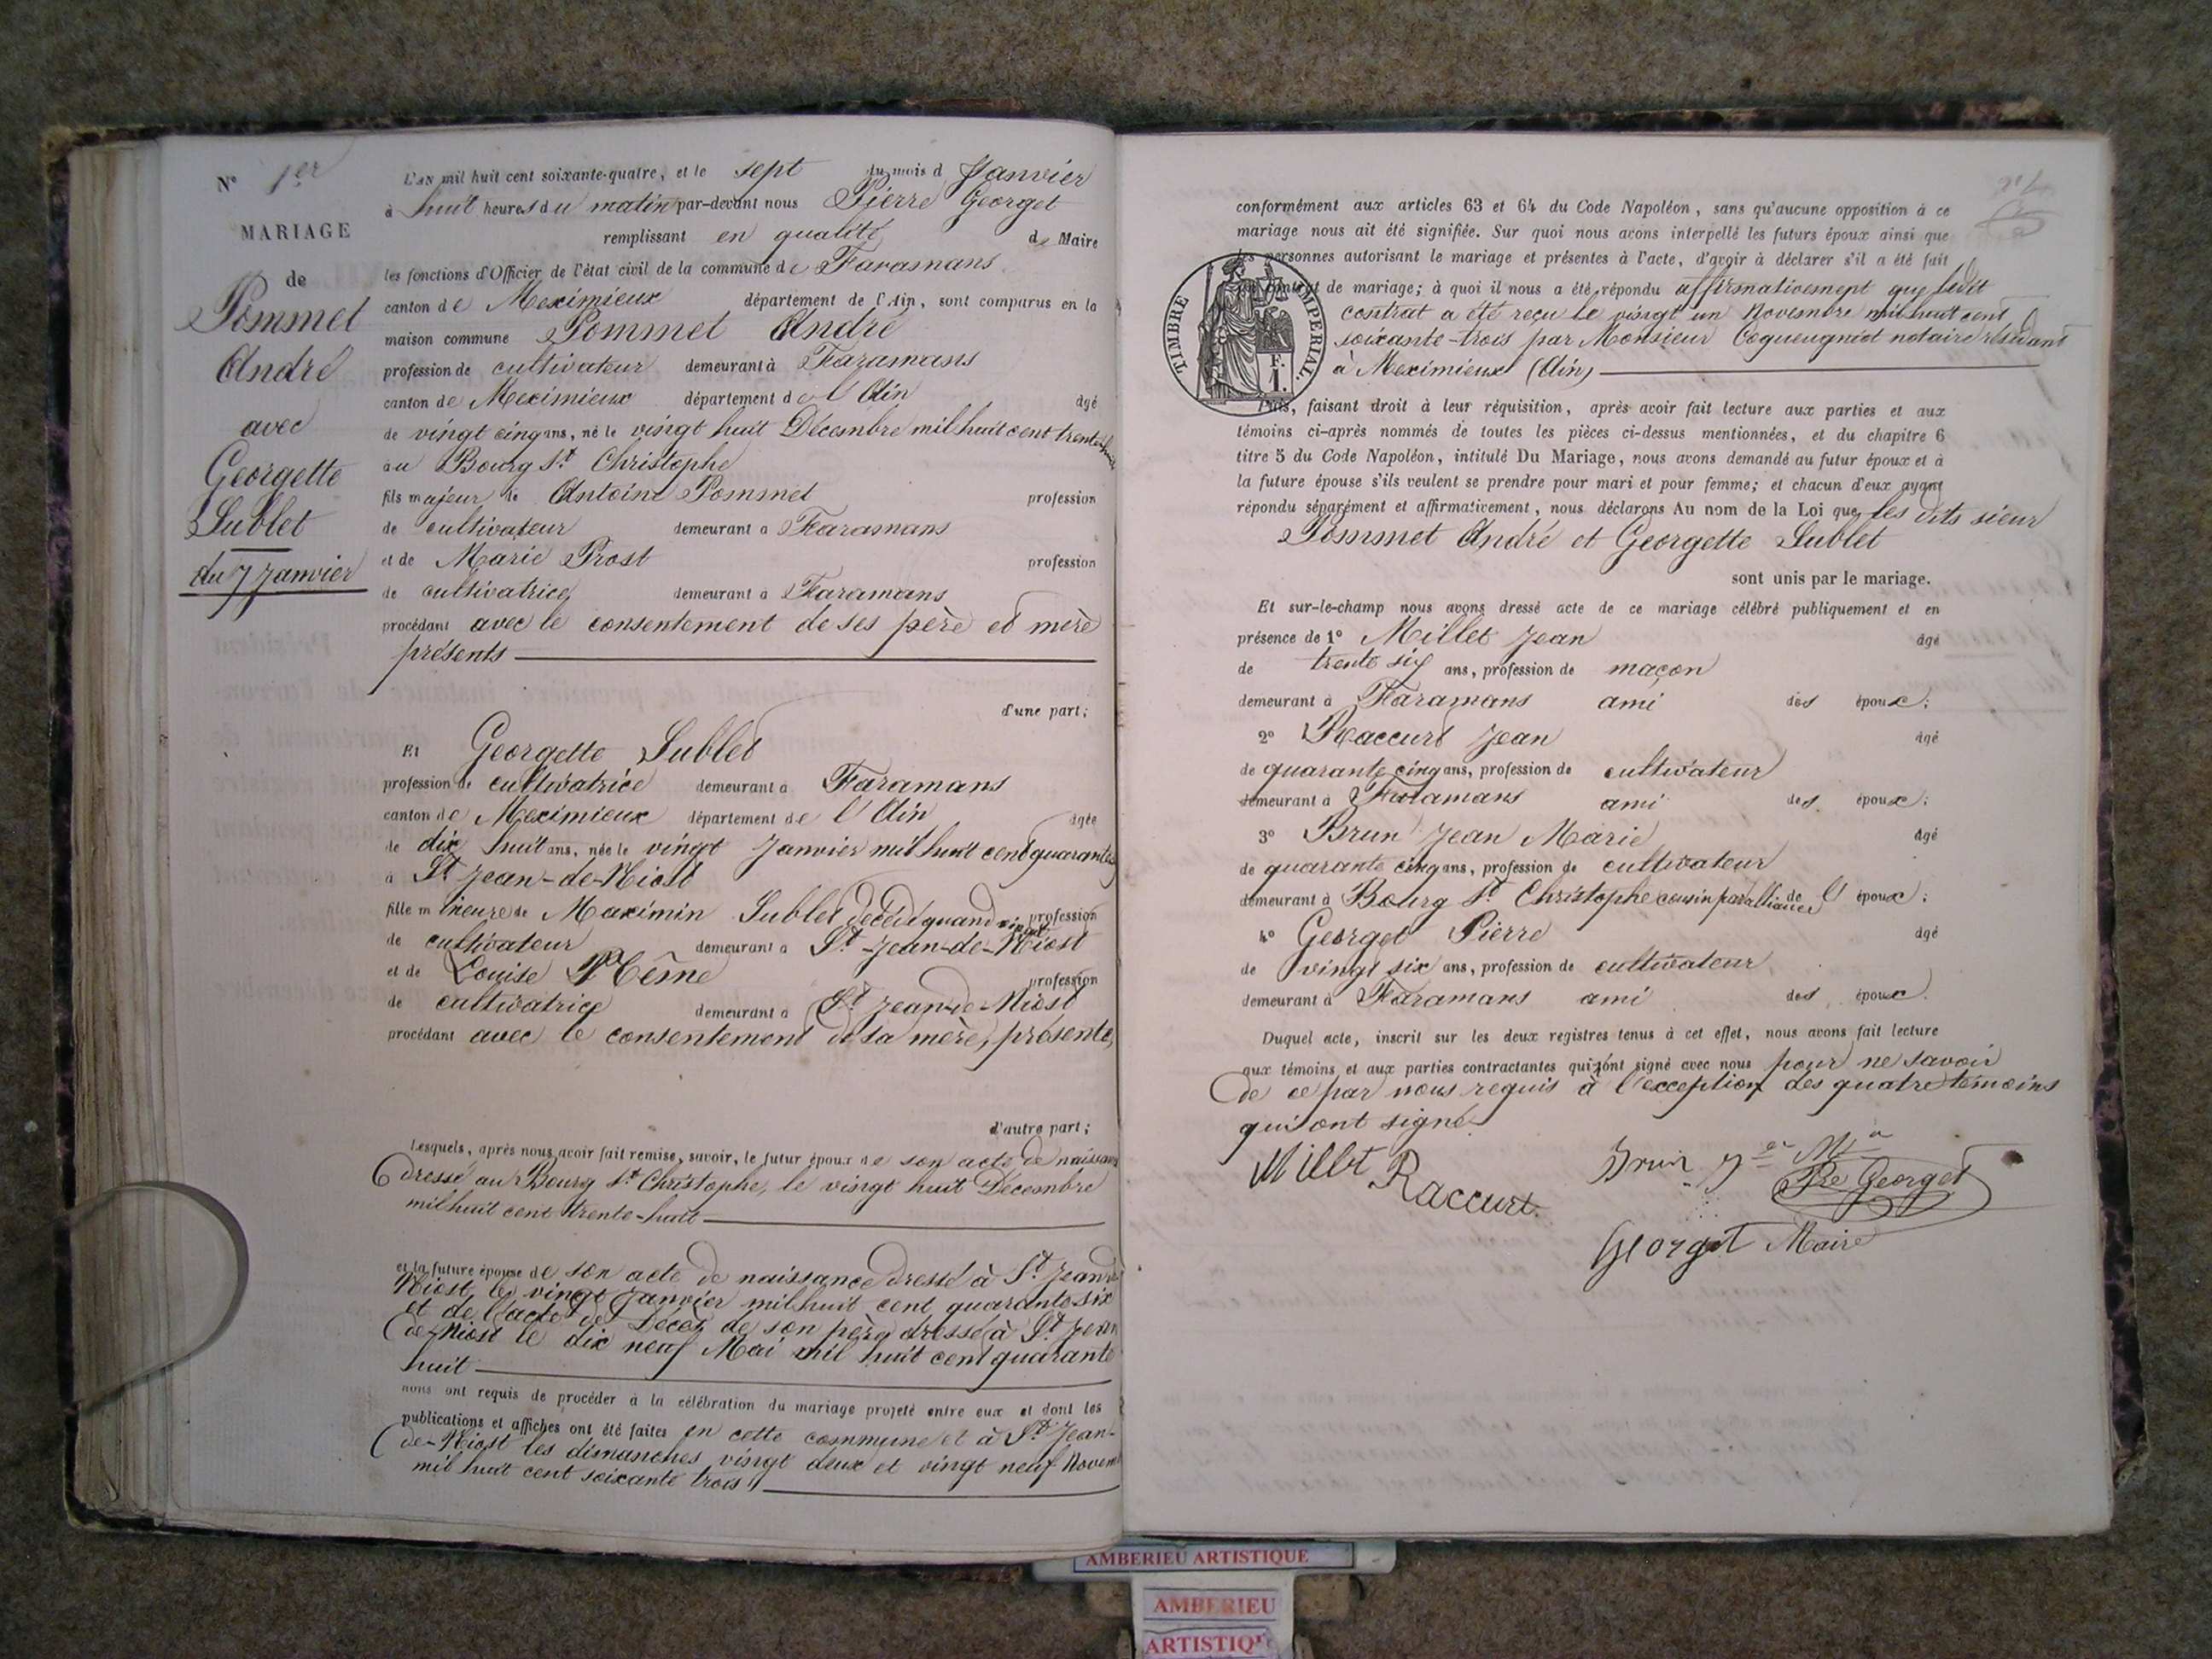 N° 1er
MARIAGE
de
Pommet
André
avec
Georgette
Sublet
du 7 Janvier
L'AN mil huit cent soixante-quatre, et le sept du mois d Janvier
à huit heures du matin par-devant nous Pierre Georget
remplissant en qualité de Maire
les fonctions d'Officier de l'état civil de la commune de Faramans
canton de Meximieux département de l'Ain, sont comparus en la
maison commune Pommet André
profession de cultivateur demeurant à Faramans
canton de Meximieux département de l'Ain âgé
de vingt cinq ans, né le vingt huit Décembre mil huit cent trente huit
au Bourg St Christophe
fils majeur de Antoine Pommet profession
de cultivateur demeurant à Faramans
et de Marie Prost profession
de cultivatrice demeurant à Faramans
procédant avec le consentement de ses père et mère
présents
d'une part;
Et Georgette Sublet
profession de cultivatrice demeurant à Faramans
canton de Meximieux département de l'Ain âgée
de dix huit ans, née le vingt Janvier mil huit cent quarante
à St Jean-de-Niost
fille mineure de Maximin Sublet décédé quand vivait profession
de cultivateur demeurant à St Jean-de-Niost
et de Louise profession
de cultivatrice demeurant à St Jean-de-Niost
procédant avec le consentement de sa mère, présente,
d'autre part;
Lesquels, après nous avoir fait remise, savoir, le futur époux de son acte de naissance
dressé au Bourg St Christophe, le vingt huit Décembre
mil huit cent trente-huit
et la future épouse de son acte de naissance dressé à St Jean de
Niost, le vingt Janvier mil huit cent quarante six
et de l'acte de décès de son père dressé à St Jean
de-Niost le dix neuf Mai mil huit cent quarante
huit
nous ont requis de procéder à la célébration du mariage projeté entre eux et dont les
publications et affiches ont été faites en cette commune et à St Jean-
de-Niost les dimanches vingt deux et vingt neuf Novem
mil huit cent soixante trois
conformément aux articles 63 et 64 du Code Napoléon, sans qu'aucune opposition à ce
mariage nous ait été signifiée. Sur quoi nous avons interpellé les futurs époux ainsi que
les personnes autorisant le mariage et présentes à l'acte, d'avoir à déclarer s'il a été fait
un contrat de mariage; à quoi il nous a été répondu affirmativement que ledit
contrat a été reçu le vingt un Novembre mil huit cent
soixante-trois par Monsieur Coqueugniot notaire résidant
à Meximieux (Ain)
TIMBRE IMPERIAL.
F.
1.
Puis, faisant droit à leur réquisition, après avoir fait lecture aux parties et aux
témoins ci-après nommés de toutes les pièces ci-dessus mentionnées, et du chapitre 6
titre 5 du Code Napoléon, intitulé Du Mariage, nous avons demandé au futur époux et à
la future épouse s'ils veulent se prendre pour mari et pour femme; et chacun d'eux ayant
répondu séparément et affirmativement, nous déclarons Au nom de la Loi que les dits sieur
Pommet André et Georgette Sublet
sont unis par le mariage.
Et sur-le-champ nous avons dressé acte de ce mariage célébré publiquement et en
présence de 1° Millet Jean âgé
de trente six ans, profession de maçon
demeurant à Faramans ami des époux;
2° Raccurt Jean âgé
de quarante cinq ans, profession de cultivateur
demeurant à Faramans ami des époux;
3° Brun Jean Marie âgé
de quarante cinq ans, profession de cultivateur
demeurant à Bourg St Christophe cousin par alliance de l'époux;
4° Georget Pierre âgé
de vingt six ans, profession de cultivateur
demeurant à Faramans ami des époux.
Duquel acte, inscrit sur les deux registres tenus à cet effet, nous avons fait lecture
aux témoins et aux parties contractantes qui n'ont signé avec nous pour ne savoir
de ce par nous requis à l'exception des quatre témoins
qui ont signé
Millet Raccurt. Brun
Pre Georget
Georget Maire
AMBERIEU ARTISTIQUE
AMBERIEU
ARTISTIQUE